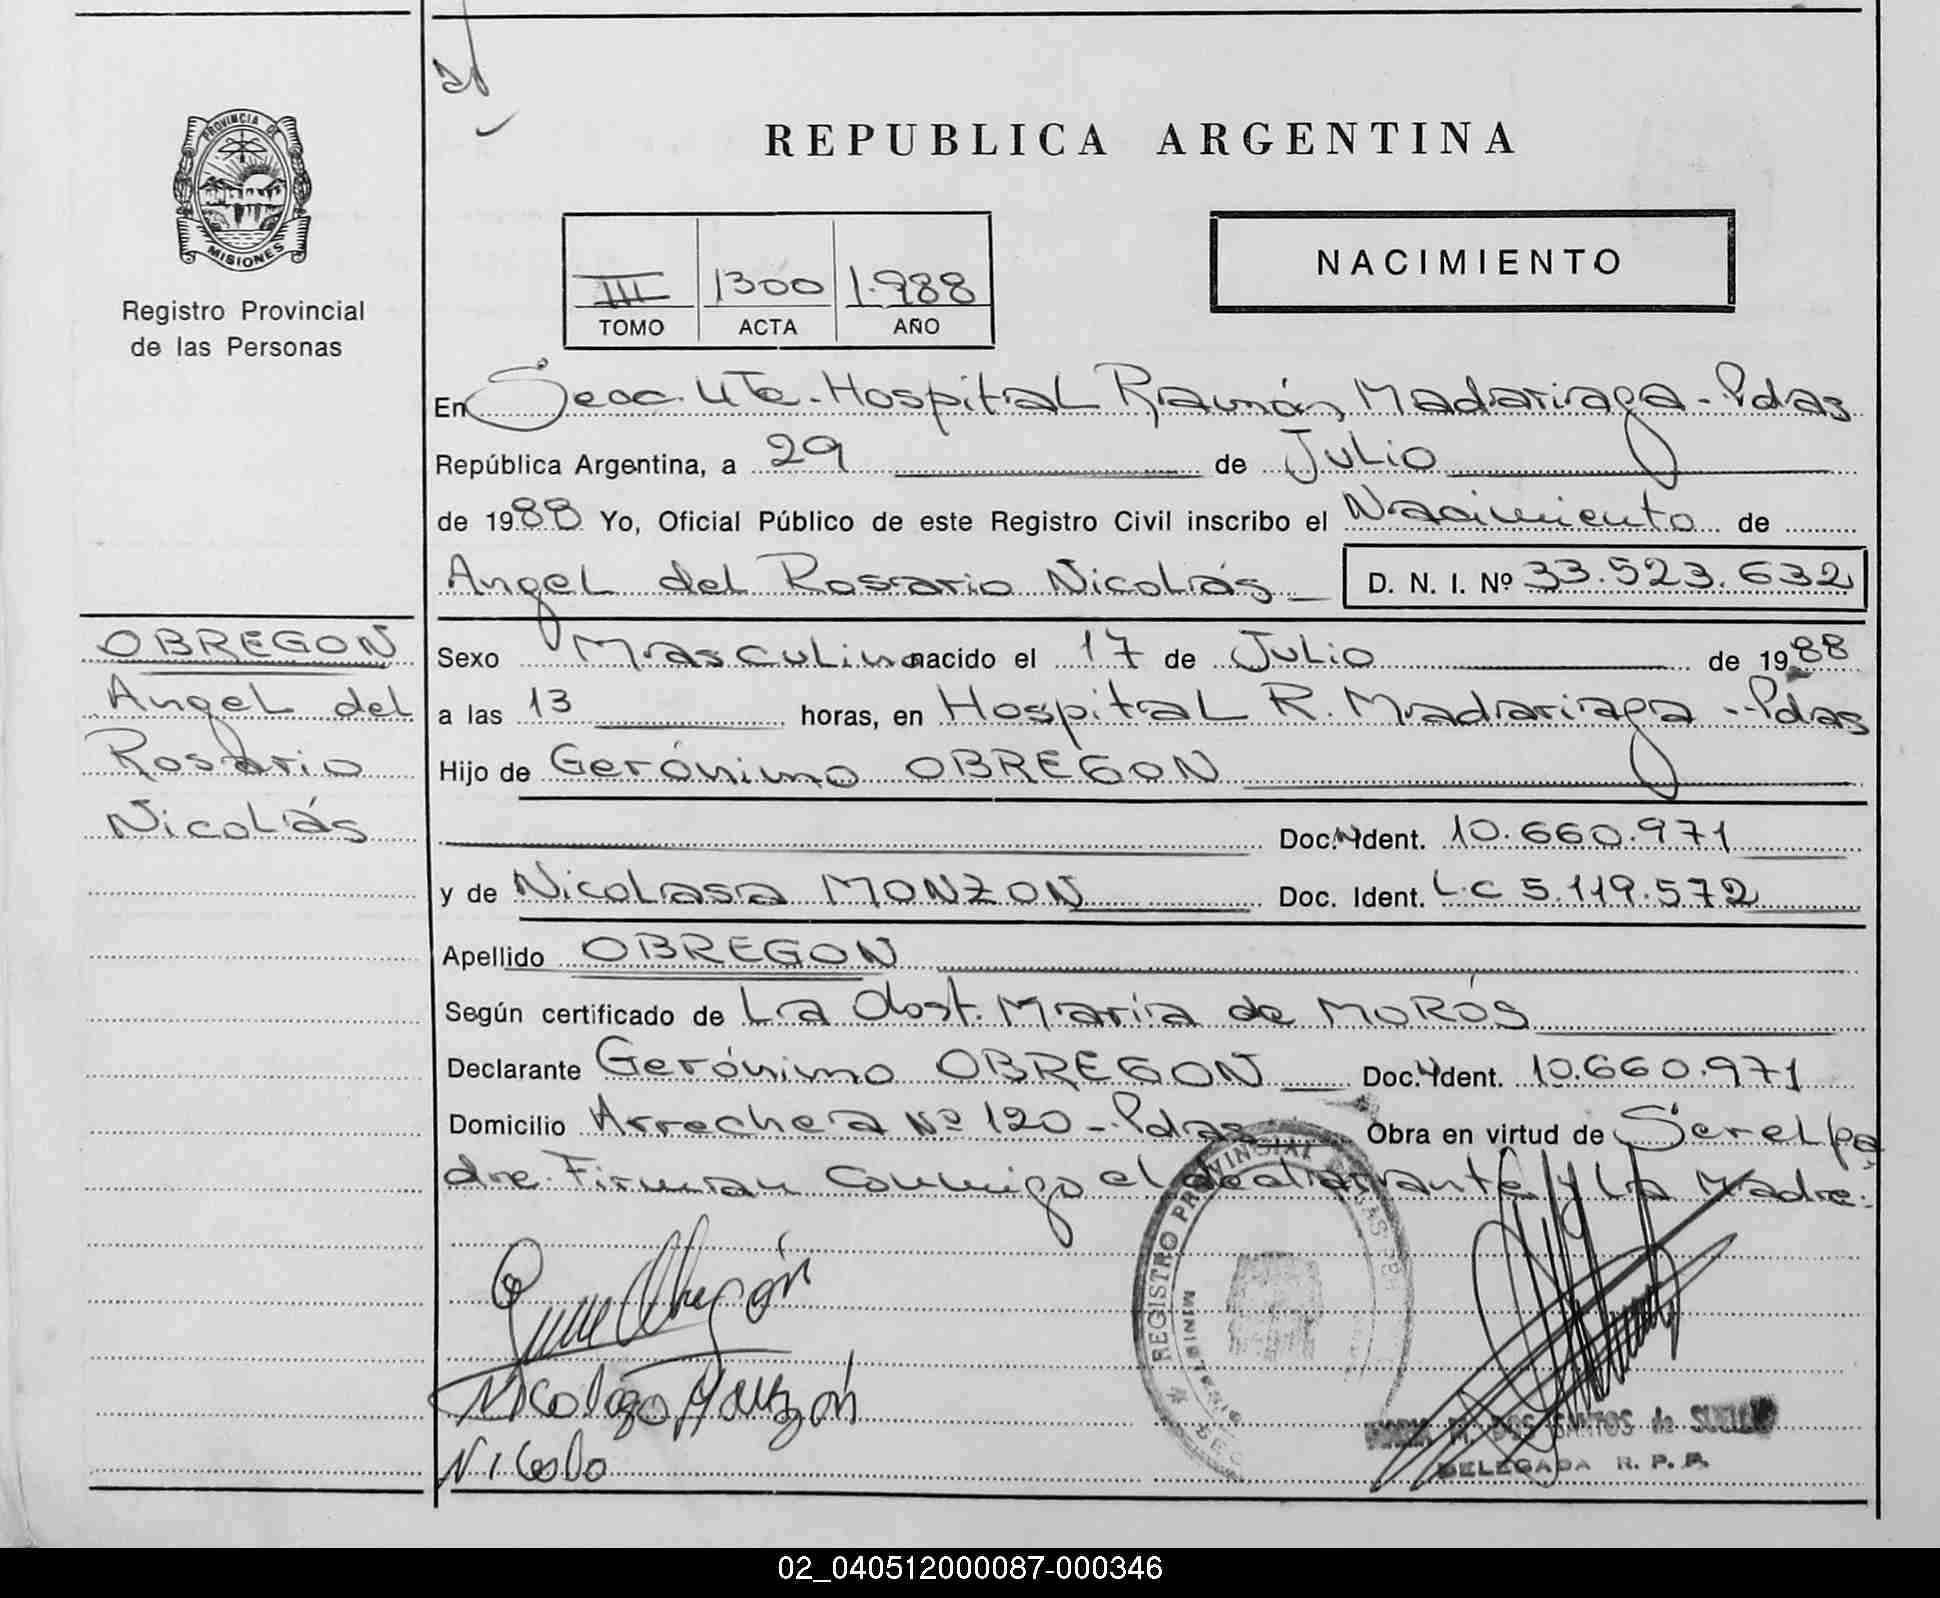 REPUBLICA ARGENTINA
PROVINCIA DE
MISIONES
Registro Provincial
de las Personas
III 1300 1.988
TOMO ACTA AÑO
NACIMIENTO
En Secc. 4Ta. Hospital Ramón Madariaga - Pdas
República Argentina, a 29 de Julio
de 1988 Yo, Oficial Público de este Registro Civil inscribo el Nacimiento de
Angel del Rosario Nicolás D. N. I. Nº 33.523.632
OBREGON
Angel del
Rosario
Nicolás
Sexo Masculino nacido el 17 de Julio de 1988
a las 13 horas, en Hospital R. Madariaga - Pdas
Hijo de Gerónimo OBREGON
Doc. Ident. 10.660.971
y de Nicolasa MONZON Doc. Ident. L.C 5.119.572
Apellido OBREGON
Según certificado de La Obst. María de MORÓS
Declarante Gerónimo OBREGON Doc. Ident. 10.660.971
Domicilio Arrechea Nº 120 - Pdas Obra en virtud de Ser el pa
dre. Firman conmigo el declarante y la Madre.
REGISTRO PROVINCIAL
Obregón
Nicolaza Monzón
Nicolo
M. DOS SANTOS de
DELEGADA R. P. P.
02_040512000087-000346